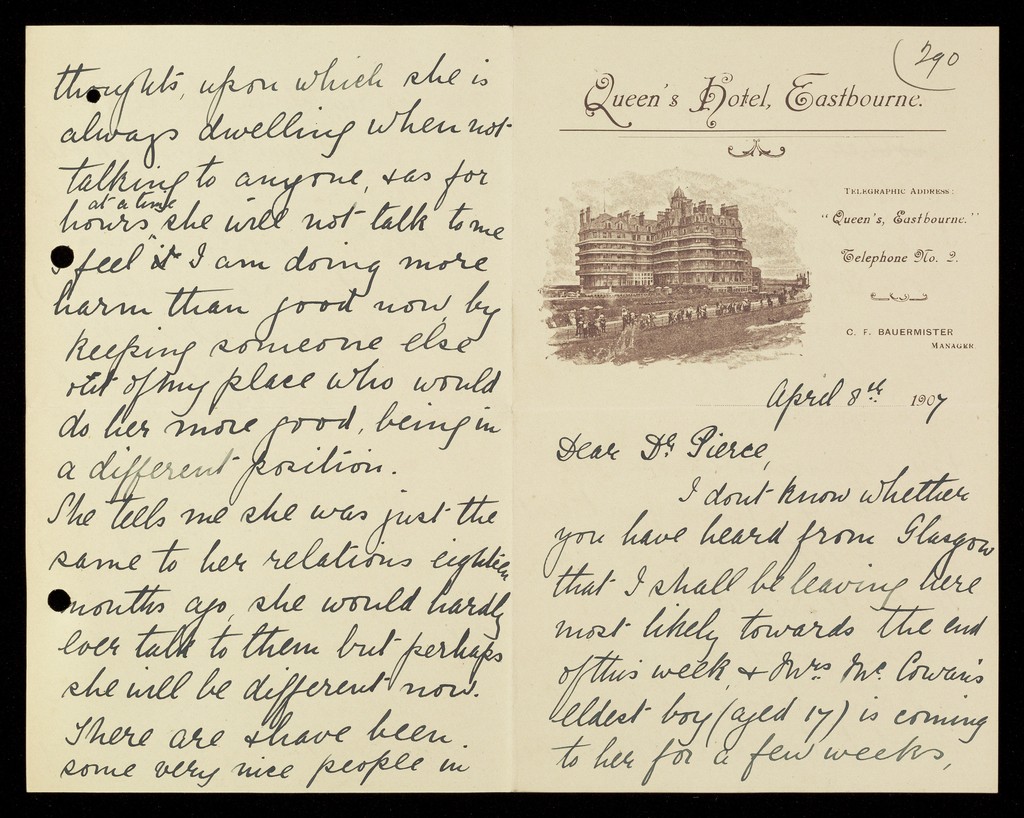 thoughts, upon which she is
always dwelling when not
talking to anyone, & as for
at a time
hours she will not talk to me
I feel it I am doing more
harm than good now by
keeping someone else
out of my place who would
do her more good, being in
a different position.
She tells me she was just the
same to her relations eighteen
months ago, she would hardly
ever talk to them but perhaps
she will be different now.
There are & have been
some very nice people in
290
Queen's Hotel, Eastbourne.
TELEGRAPHIC ADDRESS:
"Queen's, Eastbourne."
Telephone No. 2.
C. F. BAUERMISTER
MANAGER
April 8th 1907
Dear Dr Pierce,
I dont know whether
you have heard from Glasgow
that I shall be leaving here
most likely towards the end
of this week, & Mrs Mc. Cowan's
eldest boy (aged 17) is coming
to her for a few weeks,